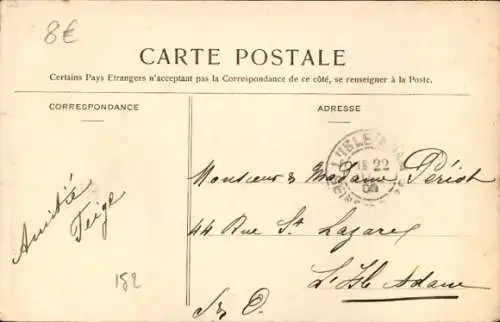 8€
CARTE POSTALE
Certains Pays Etrangers n'acceptent pas la Correspondance de ce côté, se renseigner à la Poste.
CORRESPONDANCE
ADRESSE
Amitié
152
22
Monsieur & Madame Périot
44 Rue St Lazare
L'Isle Adam
S & O.